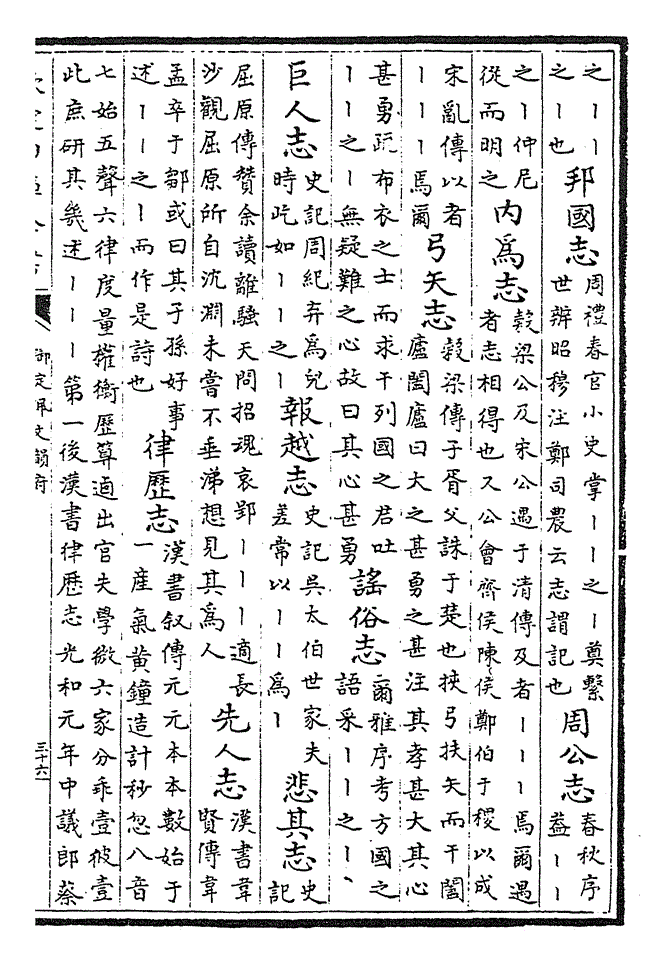 之丨丨
之丨也
邦國志
周禮春官小史掌丨丨之丨奠繫
世辨昭穆注鄭司農云志謂記也
周公志
春秋序
蓋丨丨
之丨仲尼
從而明之
內爲志
穀梁公及宋公遇于清傳及者丨丨丨焉爾遇
者志相得也又公會齊侯陳侯鄭伯于稷以成
宋亂傳以者
丨丨丨焉爾
弓矢志
穀梁傳子胥父誅于楚也挾弓扶矢而干闔
廬闔廬曰大之甚勇之甚注其孝甚大其心
甚勇疏布衣之士而求干列國之君吐
丨丨之丨無疑難之心故曰其心甚勇
謠俗志
爾雅序考方國之
語采丨丨之丨、
巨人志
史記周紀弃爲兒
時屹如丨丨之丨
報越志
史記吳太伯世家夫
差常以丨丨爲丨
悲其志
史
記
屈原傳贊余讀離騷天問招魂哀郢丨丨丨適長
沙觀屈原所自沈淵未嘗不垂涕想見其爲人
先人志
漢書韋
賢傳韋
孟卒于鄒或曰其子孫好事
述丨丨之丨而作是詩也
律歷志
漢書叙傳元元本本數始于
一產氣黃鐘造計秒忽八音
七始五聲六律度量權衡歷算逌出官失學微六家分乖壹彼壹
此庶研其幾述丨丨丨第一後漢書律歷志光和元年中議郎蔡
御定佩文韻府
三十六